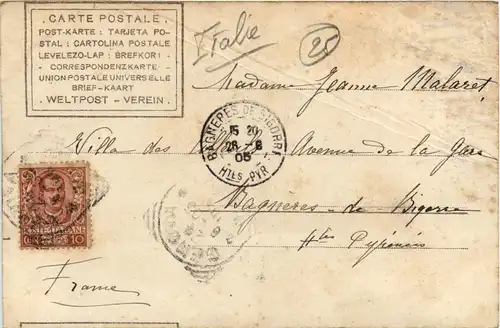 CARTE POSTALE.
POST-KARTE : TARJETA PO-
STAL : CARTOLINA POSTALE
LEVELEZO-LAP : BREFKORT .
- CORRESPONDENZKARTE -
UNION POSTALE UNIVERSELLE
BRIEF-KAART
. WELTPOST - VEREIN .
Italie
25
Madame Jeanne Malaret
BAGNERES DE BIGORRE
15 20
26 - 8
05
HTES PYR
Villa des Avenue de la Gare
Bagnères - de Bigorre
Htes Pyrénées
10
France